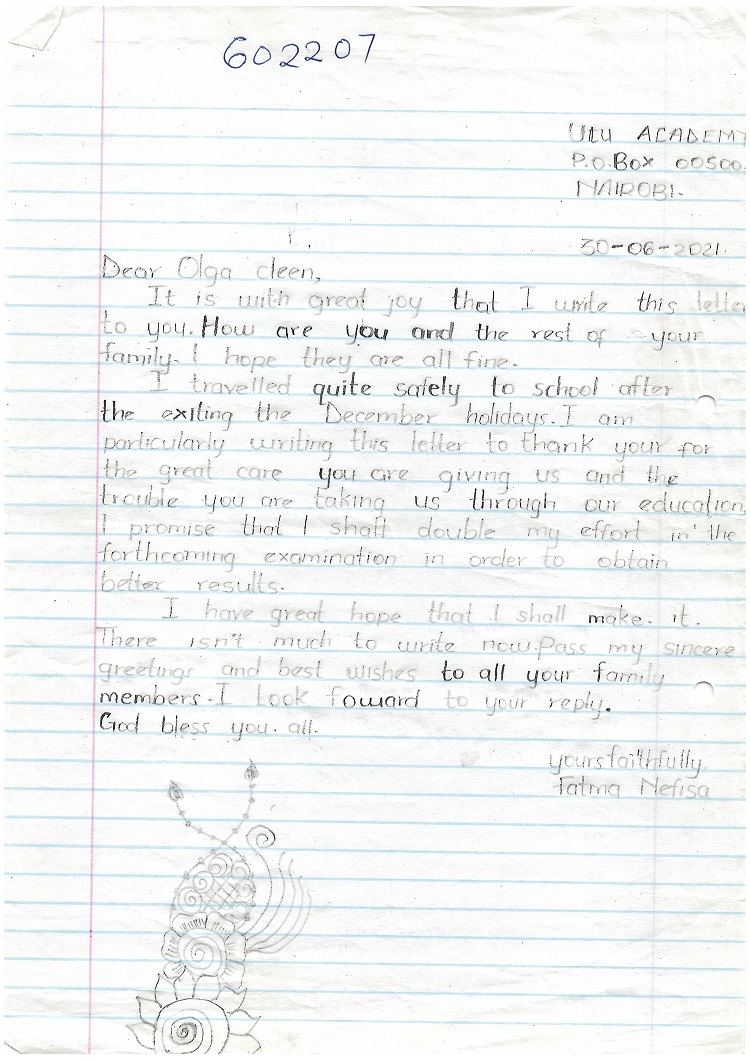 602207
ULU ACADEMY
P.O.Box 00500.
NAIROBI.
30-06-2021.
Dear Olga cleen,
It is with great joy that I write this letter
to you. How are you and the rest of your
family. I hope they are all fine.
I travelled quite safely to school after
the exiting the December holidays. I am
particularly writing this letter to thank your for
the great care you are giving us and the
trouble you are taking us through our education
I promise that I shall double my effort in the
forthcoming examination in order to obtain
better results.
I have great hope that I shall make. it.
There isn't much to write now. Pass my sincere
greetings and best wishes to all your family
members. I Look foward to your reply.
God bless you. all.
yours faithfully.
Fatma Nefisa